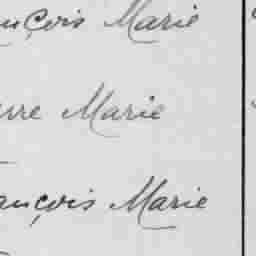 nçois Marie
rre Marie
ançois Marie